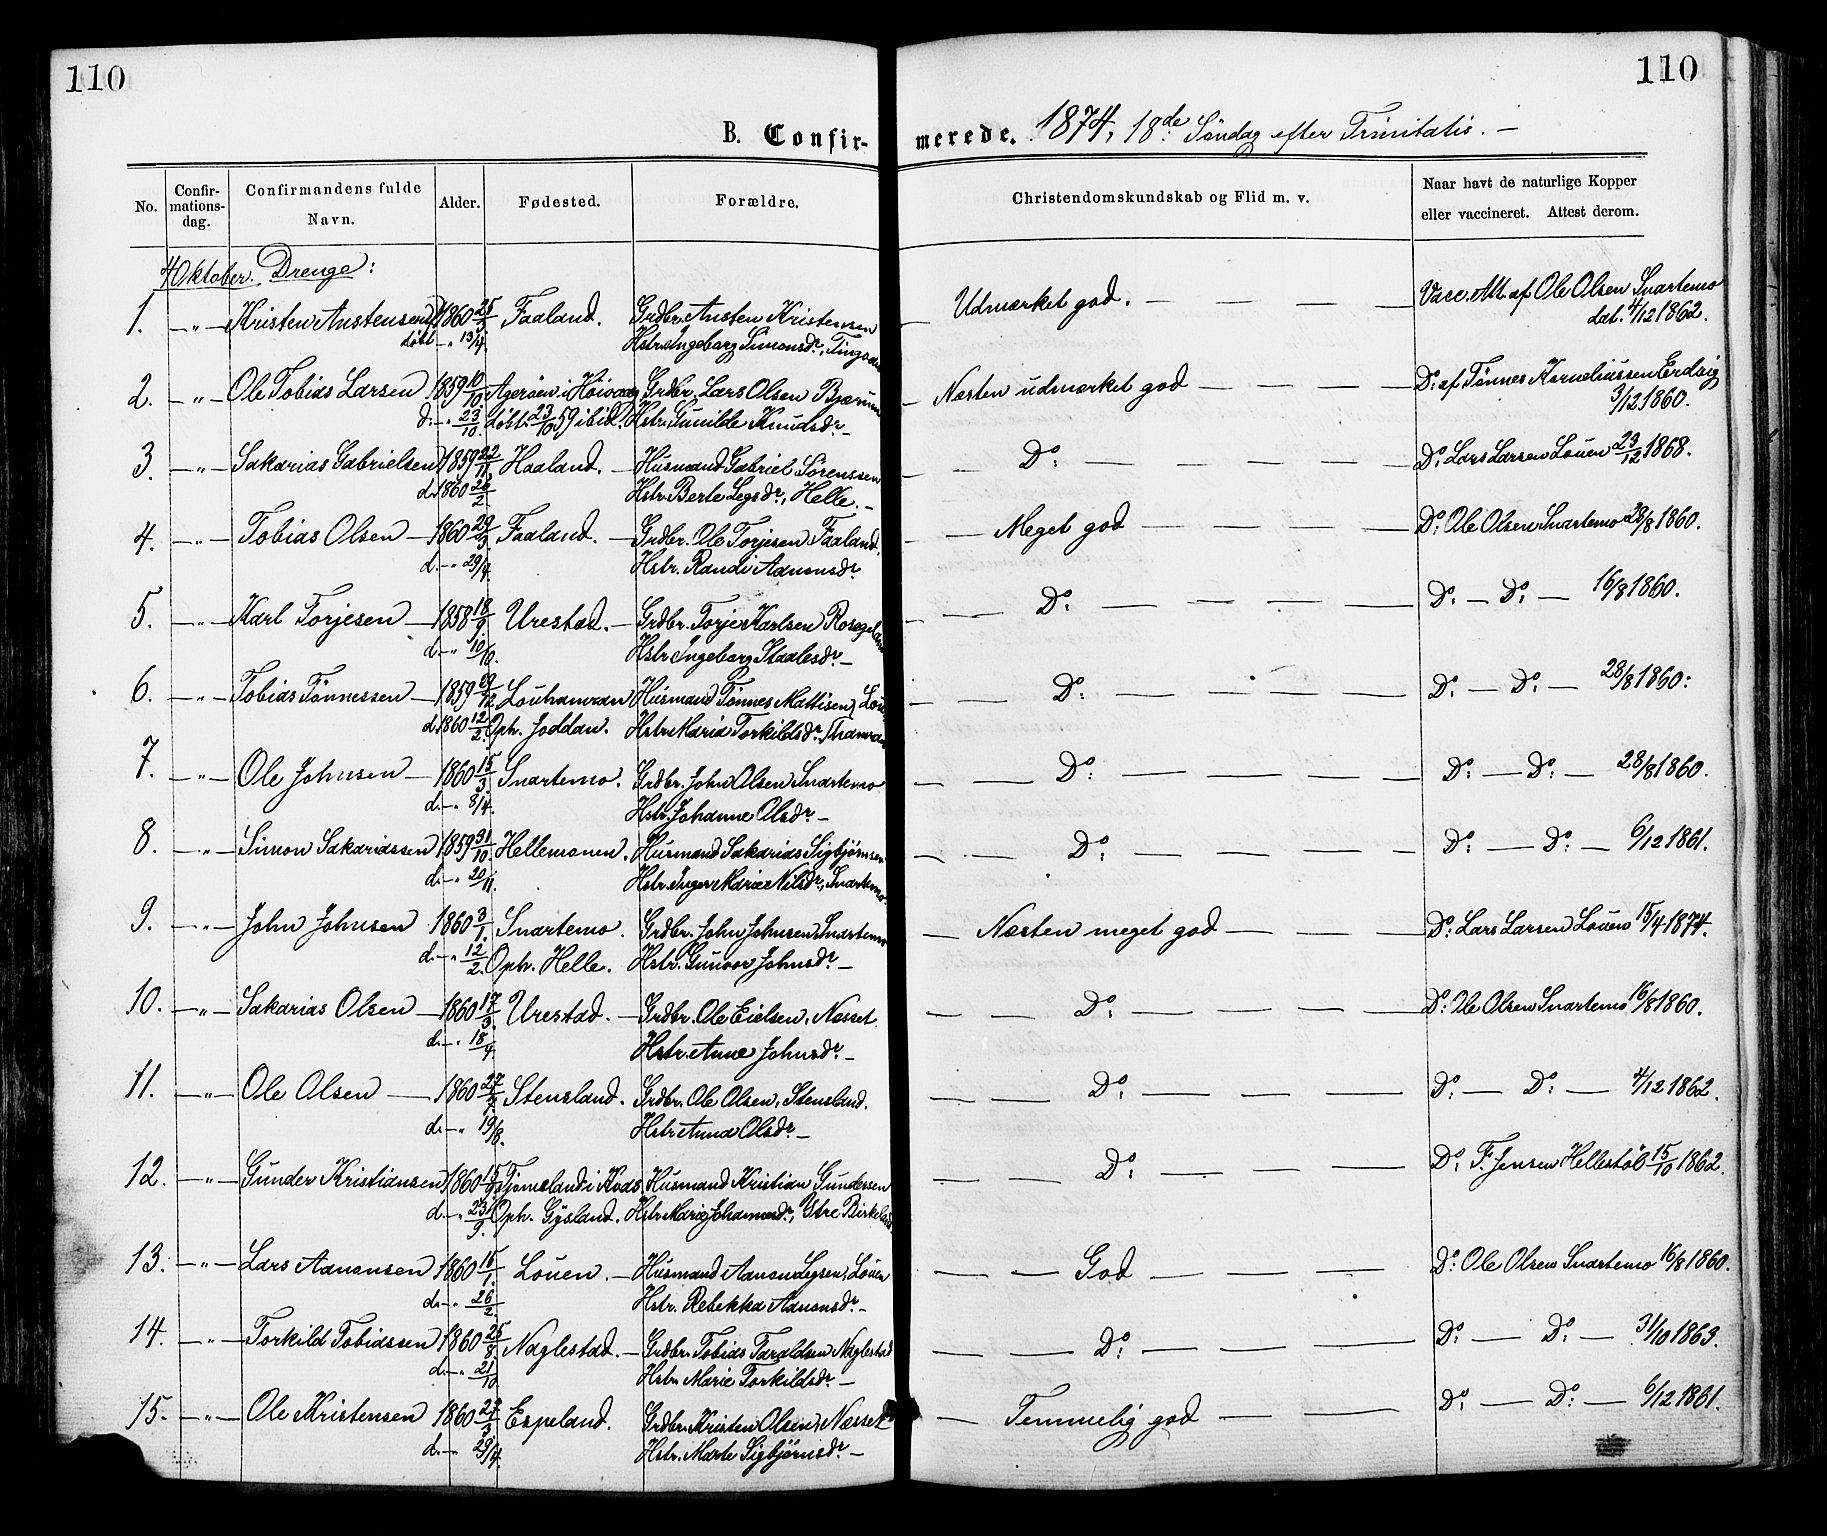 110
110
B. Confir-
merede. 1874, 18de Søndag efter Trinitatis. —
No.
Confir-
mations-
dag.
Confirmandens fulde
Navn.
Alder.
Fødested.
Forældre.
Christendomskundskab og Flid m. v.
Naar havt de naturlige Kopper
eller vaccineret. Attest derom.
4 Oktober. Drenge:
1. —„— Kristen Austensen 1860 25/3 Faaland. Grdbr. Austen Kristensen — Udmærket god. — — — — Vacc. Att. af Ole Olsen Snartemo
døbt —„ 13/4. Hstr. Ingeborg Simonsdr, dat. 4/12 1862.
2. —„— Ole Tobias Larsen 1859 10/10 Agerøen i Høivaag Grdbr. Lars Olsen Bjærum Næsten udmærket god — — — — Do: af Tønnes Korneliussen Erdvig
d: —„ 23/10. Døbt. 23/10 59 ibid. Hstr. Gunilde Knudsdr — 3/12 1860.
3. —„— Sakarias Gabrielsen 1859 22/11 Haaland. — Husmand Gabriel Sørenssen — — Do: — — — — — Do: Lars Larsen Løuen 23/12 1868.
d. 1860 26/2 Hstr. Berte Legsdr, Helle. —
4. —„— Tobias Olsen — 1860 29/3 Faaland. — Grdbr. Ole Torjesen Faaland. — — Meget god — — — — Do: Ole Olsen Snartemo 28/8 1860.
d. —„ 29/4. Hstr. Randi Adnonsdr
5. —„— Karl Torjesen — 1858 18/9. Urestad. — Grdbr. Torje Karlsen — — Do: — — — — — Do: — Do: — 16/8 1860.
d. —„ 10/10. Hstr. Ingeborg Staalesdr —
6. —„— Tobias Tønnessen — 1859 29/12 Louhamran Husmand Tønnes Mattisen — — Do: — — — — — Do: — Do: — 28/8 1860:
d. 1860 12/2. Oph. Joddan. Hstr. Maria Torkildsdr,
7. —„— Ole Johnsen — 1860 15/3. Snartemo. Grdbr. John Olsen Snartemo — — Do: — — — — — Do: — Do: — 28/8 1860.
d. —„ 8/4. Hstr. Johanne Olsdr —
8. —„— Simon Sakariassen 1859 31/10. Hellemonen. Husmand Sakarias Sigbjørnsen — — Do: — — — — Do: — Do: — 6/12 1861.
d. —„ 20/11. Hstr. Inger Marie Nilsdr, Snartemo.
9. —„— John Johnsen 1860 3/1. Snartemo. Grdbr. John Johnsen Snartemo — Næsten meget god — — — — Do: Lars Larsen Løuen 15/4 1874.
d. —„ 12/2. Oph. Helle. Hstr. Gunvor Johnsdr —
10. —„— Sakarias Olsen — 1860 17/3. Urestad. — Grdbr. Ole Eielsen, Næsset. — — — Do: — — — — Do: Ole Olsen Snartemo 16/8 1860.
d. —„ 18/4 Hstr. Anne Johnsdr —
11. —„— Ole Olsen — 1860 27/7. Stensland. Grdbr. Ole Olsen, Stensland. — — — Do: — — — — Do: — Do: — 4/12 1862.
d. —„ 19/8. Hstr. Anna Olsdr —
12. —„— Gunder Kristiansen 1860 15/9. Fjomeland i Kvås, Husmand Kristian Gundersen — — — Do: — — — — Do: F. Jensen Hellestöl 15/10 1862.
d. —„ 23/9. Oph. Gysland. Hstr. Marie Johannesdr, Ytre Birkeland
13. —„— Lars Adnonsen 1860 15/1. Louen. — Husmand Adnon Legsen, Löuen — — God — — — — Do: Ole Olsen Snartemo 16/8 1860.
d. —„ 26/2. Hstr. Rebekka Adnonsdr —
14. —„— Torkild Tobiassen 1860 25/8. Naglestad. — Grdbr. Tobias Taraldsen Naglestad — — — Do: — — — — Do: — Do: — 31/10 1863.
d. —„ 21/10 Hstr. Marie Torkildsdr —
15. —„— Ole Kristensen 1860 27/3 Espeland. Grdbr. Kristen Olsen, Næsset — Temmelig god — — — Do: — Do: — 6/12 1861.
d. — 29/4. Hstr. Marte Sigbjørnsdr —